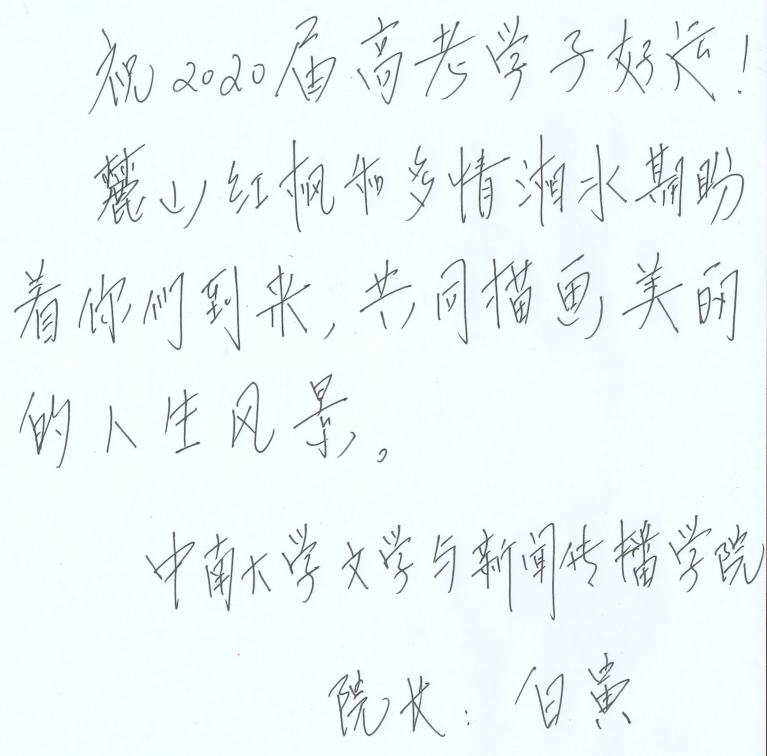 祝2020届高考学子好运！
麓山红枫和多情湘水期盼
着你们到来，共同描画美丽
的人生风景。
中南大学文学与新闻传播学院
院长：白寅